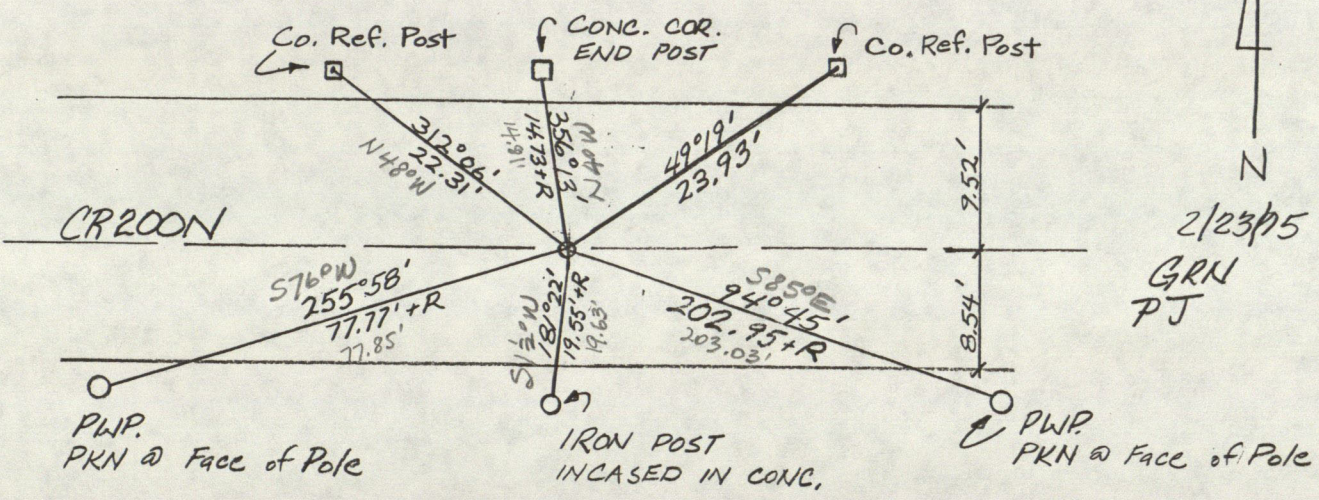 Co. Ref. Post
CONC. COR.
END POST
Co. Ref. Post
312°06'
22.31'
N48°W
356°13'
14.73+R
14.91
N4°W
49°19'
23.93'
9.52'
N
2/23/95
GRN
PJ
CR200N
S76°W
255°58'
77.77'+R
77.85'
S1½°W
181°22'
19.55'+R
19.63'
S85°E
94°45'
202.95+R
203.03'
8.54'
PWP.
PKN @ Face of Pole
IRON POST
INCASED IN CONC.
PWP.
PKN @ Face of Pole